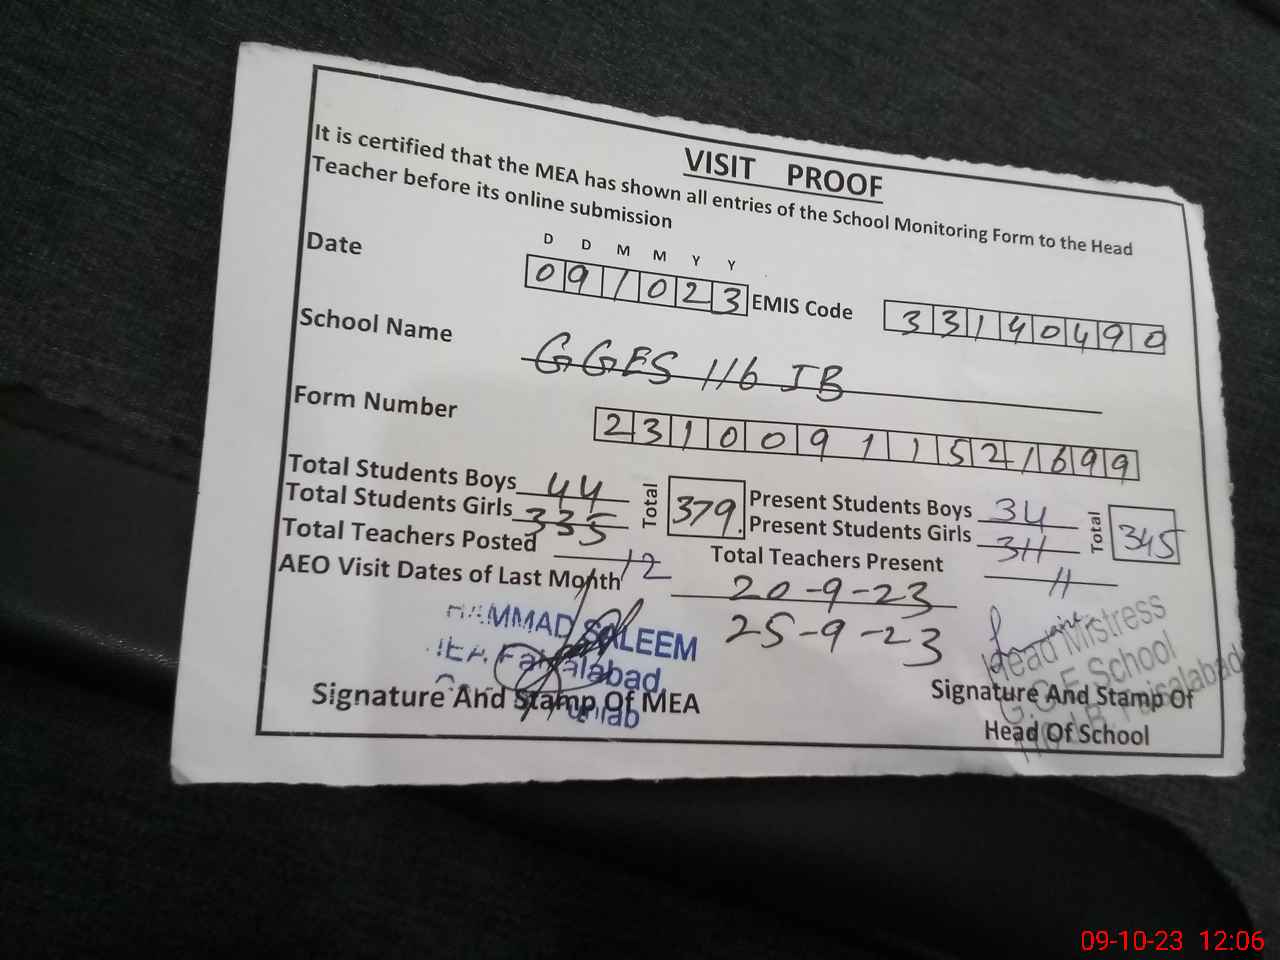 VISIT PROOF
It is certified that the MEA has shown all entries of the School Monitoring Form to the Head
Teacher before its online submission
D D M M Y Y
Date 09 10 23 EMIS Code 33140490
School Name GGES 116 JB
Form Number 23100911521699
Total Students Boys 44 Total 379 Present Students Boys 34 Total 345
Total Students Girls 335 Present Students Girls 311
Total Teachers Posted 12 Total Teachers Present 11
AEO Visit Dates of Last Month 20-9-23
25-9-23
HAMMAD SALEEM
MEA Faisalabad
Punjab
Signature And Stamp Of MEA
Head Mistress
G.G.E School
Faisalabad
Signature And Stamp Of
Head Of School
09-10-23 12:06